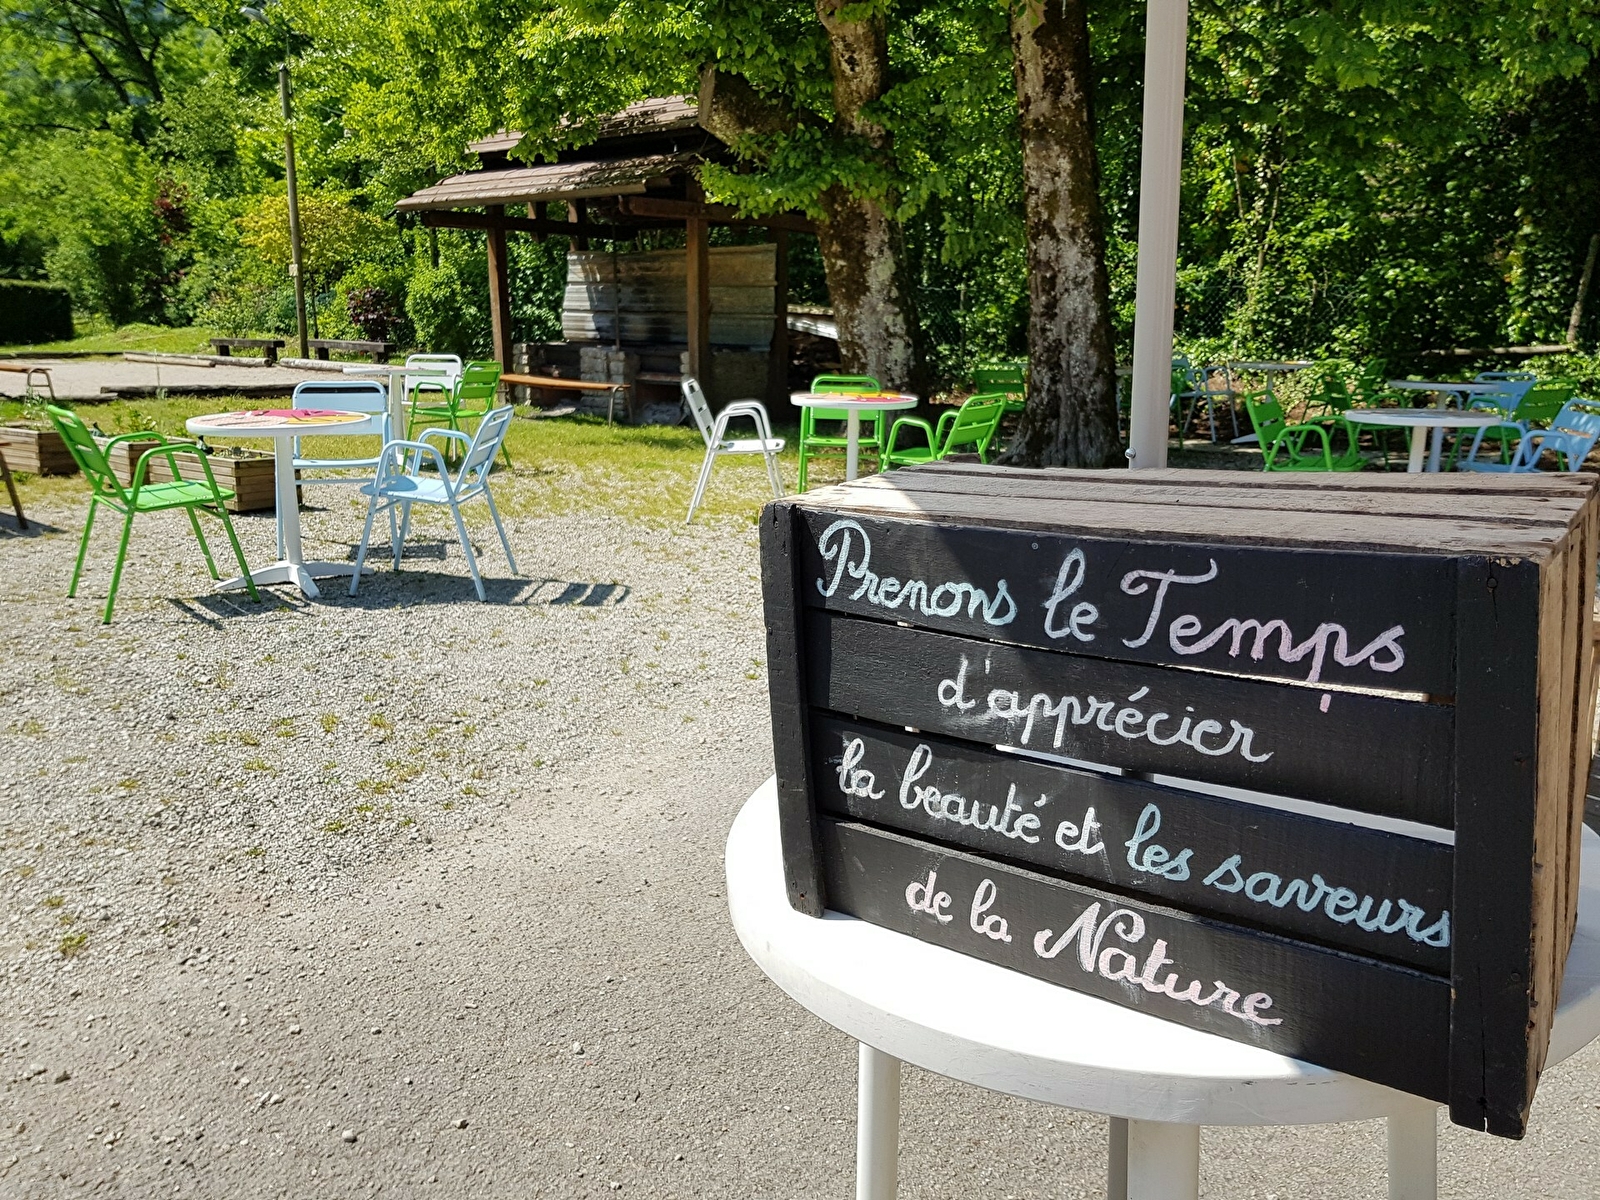 Prenons le Temps
d'apprécier
la beauté et les saveurs
de la Nature